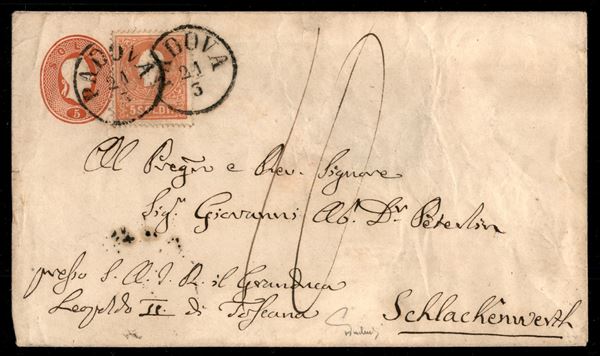 SOLDI
5
5 SOLDI
PADOVA
21
3
PADOVA
21
3
10
Al Pregᵐ e Rev. Signore
Sigʳ Giovanni Abᵉ Dʳ Peterlin
presso S. A. I. R. il Granduca
Leopoldo II. di Toscana
Schlackenwerth